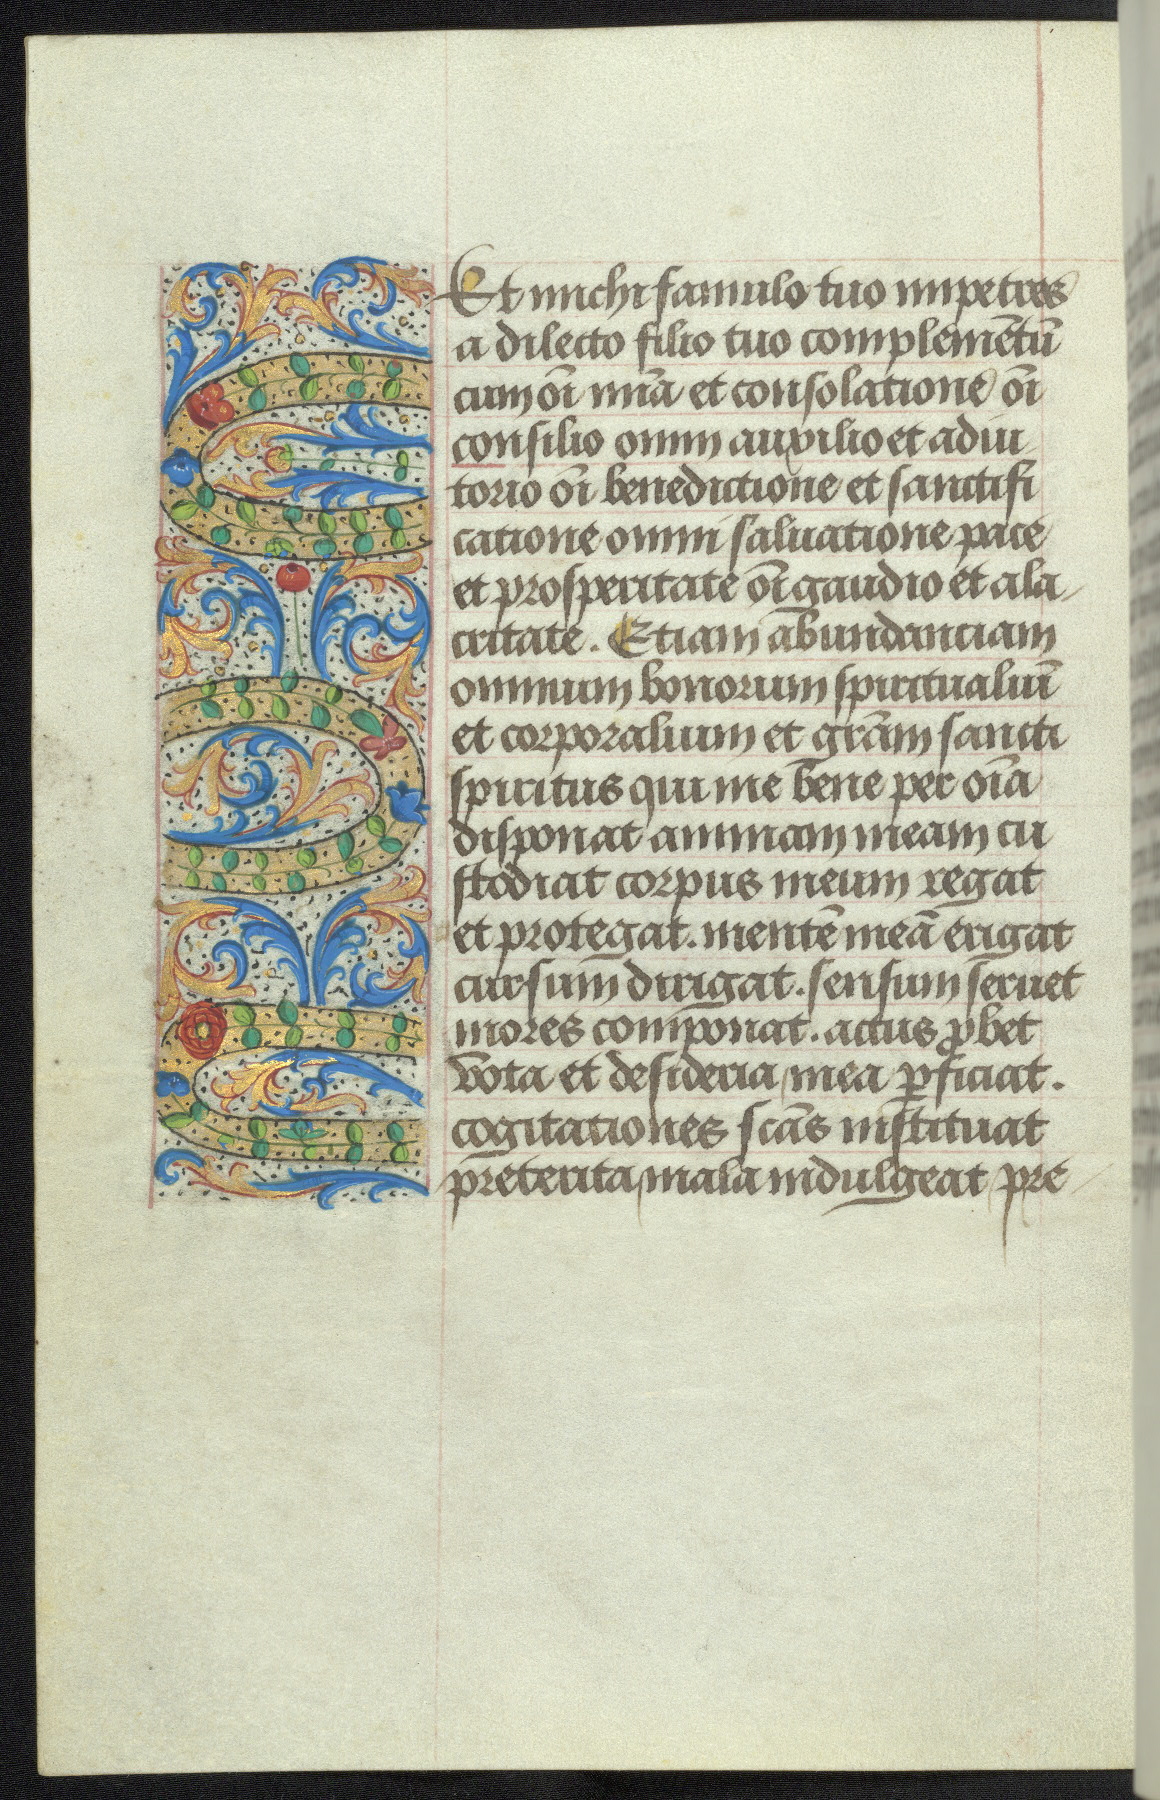 Et michi famulo tuo impetres
a dilecto filio tuo complemētū
cum oī mīa et consolatione oī
consilio omni auxilio et adiu
torio oī benedictione et sanctifi
catione omni saluatione pace
et prosperitate oī gaudio et ala
critate. Etiam abundanciam
omnium bonorum spiritualiuī
et corporalium et grām sancti
spiritus qui me bene per oīa
disponat animam meam cu
stodiat corpus meum regat
et protegat. mentē meā erigat
cursum dirigat. sensum seruet
mores componat. actus ꝓbet
vota et desideria mea ꝑficiat.
cogitationes scās instituat
preterita mala indulgeat pre